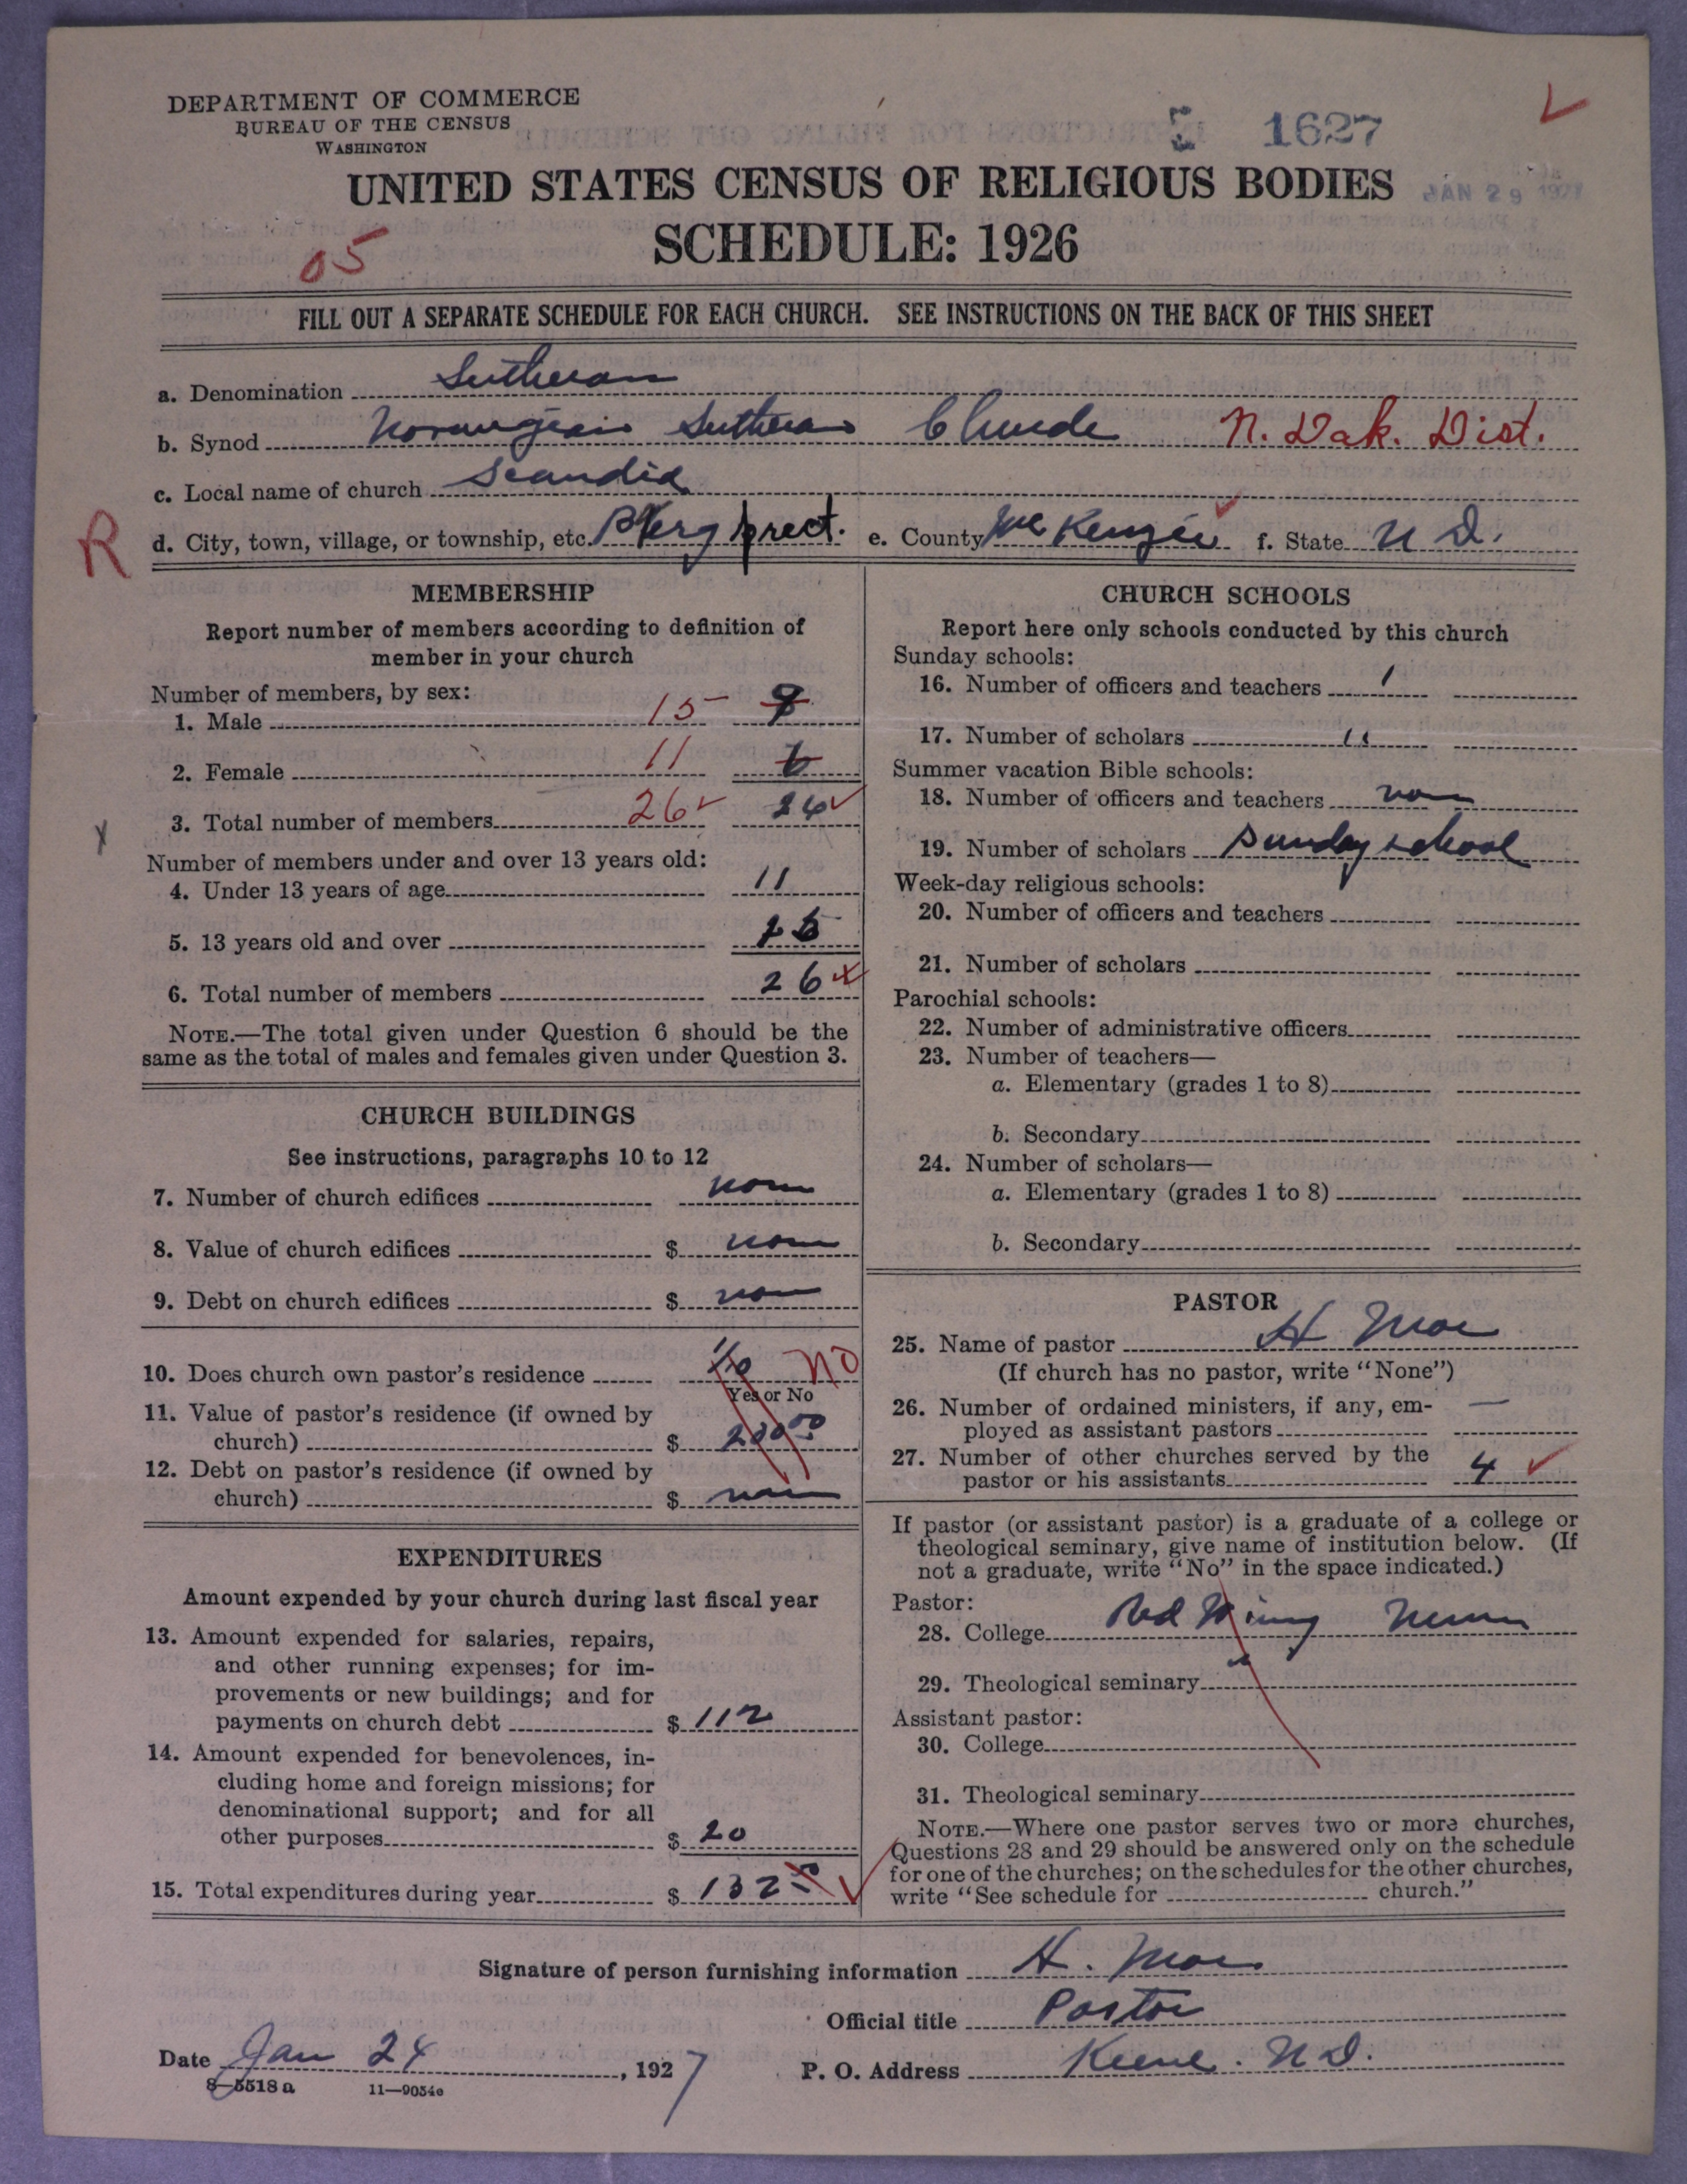 DEPARTMENT OF COMMERCE
BUREAU OF THE CENSUS
WASHINGTON
1627
JAN 29 1927
UNITED STATES CENSUS OF RELIGIOUS BODIES
SCHEDULE: 1926
05
FILL OUT A SEPARATE SCHEDULE FOR EACH CHURCH. SEE INSTRUCTIONS ON THE BACK OF THIS SHEET
a. Denomination Lutheran
b. Synod Norwegian Lutheran Church N. Dak. Dist.
c. Local name of church Scandia
R
d. City, town, village, or township, etc. Berg prect. e. County McKenzie f. State N D.
MEMBERSHIP
Report number of members according to definition of
member in your church
Number of members, by sex:
1. Male 15 9
2. Female 11 6
3. Total number of members 26 26
Number of members under and over 13 years old:
4. Under 13 years of age 11
5. 13 years old and over 15
6. Total number of members 26
NOTE.—The total given under Question 6 should be the
same as the total of males and females given under Question 3.
CHURCH BUILDINGS
See instructions, paragraphs 10 to 12
7. Number of church edifices non
8. Value of church edifices $ non
9. Debt on church edifices $ non
10. Does church own pastor's residence No
Yes or No
11. Value of pastor's residence (if owned by
church) $ 200 00
12. Debt on pastor's residence (if owned by
church) $ non
EXPENDITURES
Amount expended by your church during last fiscal year
13. Amount expended for salaries, repairs,
and other running expenses; for im-
provements or new buildings; and for
payments on church debt $ 112
14. Amount expended for benevolences, in-
cluding home and foreign missions; for
denominational support; and for all
other purposes $ 20
15. Total expenditures during year $ 132
CHURCH SCHOOLS
Report here only schools conducted by this church
Sunday schools:
16. Number of officers and teachers 1
17. Number of scholars 11
Summer vacation Bible schools:
18. Number of officers and teachers non
19. Number of scholars Sunday school
Week-day religious schools:
20. Number of officers and teachers
21. Number of scholars
Parochial schools:
22. Number of administrative officers
23. Number of teachers—
a. Elementary (grades 1 to 8)
b. Secondary
24. Number of scholars—
a. Elementary (grades 1 to 8)
b. Secondary
PASTOR
25. Name of pastor H Moe
(If church has no pastor, write "None")
26. Number of ordained ministers, if any, em-
ployed as assistant pastors —
27. Number of other churches served by the
pastor or his assistants 4
If pastor (or assistant pastor) is a graduate of a college or
theological seminary, give name of institution below. (If
not a graduate, write "No" in the space indicated.)
Pastor:
28. College Red Wing Minn
29. Theological seminary "
Assistant pastor:
30. College
31. Theological seminary
NOTE.—Where one pastor serves two or more churches,
Questions 28 and 29 should be answered only on the schedule
for one of the churches; on the schedules for the other churches,
write "See schedule for church."
Signature of person furnishing information H. Moe
Official title Pastor
Date Jan 24, 1927 P. O. Address Keene. N D.
8—5518 a 11—9054c